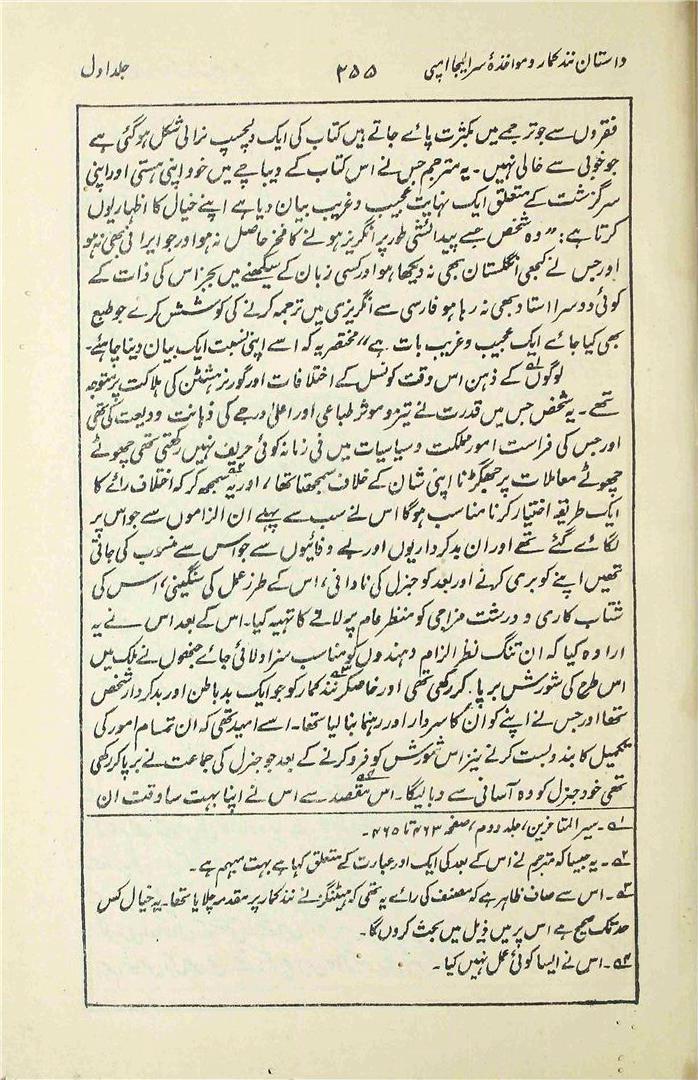 داستان نندکمار و مواخذۂ سر ایلیجا امپی ۲۵۵ جلد اول
فقروں سے جو ترجمے میں بکثرت پائے جاتے ہیں کتاب کی ایک دلچسپ نرالی شکل ہوگئی ہے
جو خوبی سے خالی نہیں ۔ یہ مترجم جس نے اس کتاب کے دیباچے میں خود اپنی ہستی اور اپنی
سرگزشت کے متعلق ایک نہایت عجیب و غریب بیان دیا ہے اپنے خیال کا اظہار یوں
کرتا ہے : ”وہ شخص جسے پیدائشی طور پر انگریز ہونے کا فخر حاصل نہ ہو اور جو ایرانی بھی نہ ہو
اور جس نے کبھی انگلستان بھی نہ دیکھا ہو اور کسی زبان کے سیکھنے میں بجز اس کی ذات کے
کوئی دوسرا استاد بھی نہ رہا ہو فارسی سے انگریزی میں ترجمہ کرنے کی کوشش کرے جو طبع
بھی کیا جائے ایک عجیب و غریب بات ہے“ مختصر یہ کہ اسے اپنی نسبت ایک بیان دینا چاہئے۔
لوگوں کے ذہن اس وقت کونسل کے اختلافات اور گورنر ہسٹن کی ہلاکت پر متوجہ
تھے ۔ یہ شخص جس میں قدرت نے تیز و موثر طباعی اور اعلیٰ درجے کی ذہانت ودیعت کی تھی
اور جس کی فراست امور مملکت و سیاسیات میں فی زمانہ کوئی حریف نہیں رکھتی تھی چھوٹے
چھوٹے معاملات پر جھگڑنا اپنی شان کے خلاف سمجھتا تھا ، اور یہ سمجھ کر کہ اختلاف رائے کا
ایک طریقہ اختیار کرنا مناسب ہوگا اس نے سب سے پہلے ان الزاموں سے جو اس پر
لگائے گئے تھے اور ان بدکرداریوں اور بے وفائیوں سے جو اس سے منسوب کی جاتی
تھیں اپنے کو بری کرنے اور بعد کو جنرل کی نادانی ، اس کے طرز عمل کی سنگینی ، اس کی
شتاب کاری و درشت مزاجی کو منظر عام پر لانے کا تہیہ کیا۔ اس کے بعد اس نے یہ
ارادہ کیا کہ ان تنگ نظر الزام دہندوں کو مناسب سزا دلائی جائے جنھوں نے ملک میں
اس طرح کی شورش برپا کر رکھی تھی اور خاصکر نندکمار کو جو ایک بدباطن اور بدکردار شخص
تھا اور جس نے اپنے کو ان کا سردار اور رہنما بنا لیا تھا ۔ اسے امید تھی کہ ان تمام امور کی
تکمیل کا بندوبست کرنے نیز اس شورش کو فرو کرنے کے بعد جو جنرل کی جماعت نے برپا کر رکھی
تھی خود جنرل کو وہ آسانی سے دبا لیگا ۔ اس مقصد سے اس نے اپنا بہت سا وقت ان
۱؎ ۔ سیر المتاخرین ، جلد دوم ، صفحہ ۴۶۳ تا ۴۶۵ ۔
۲؎ ۔ یہ جیسا کہ مترجم نے اس کے بعد کی ایک اور عبارت کے متعلق کہا ہے بہت مبہم ہے ۔
۳؎ ۔ اس سے صاف ظاہر ہے کہ مصنف کی رائے یہ تھی کہ ہیٹنگز نے نندکمار پر مقدمہ چلایا تھا ۔ یہ خیال کس
حد تک صحیح ہے اس پر میں ذیل میں بحث کروں گا ۔
۴؎ ۔ اس نے ایسا کوئی عمل نہیں کیا ۔